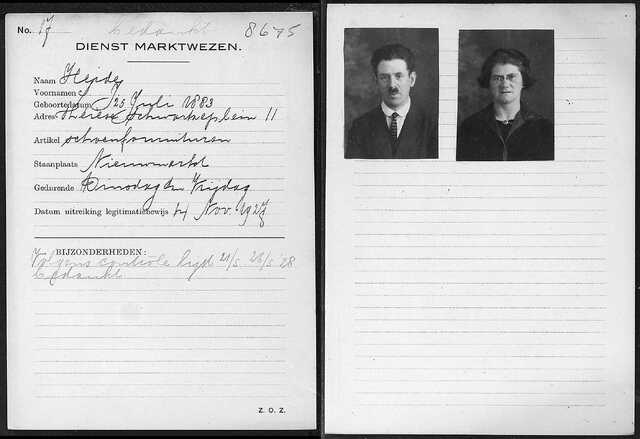 No. 17 bedankt 8675
DIENST MARKTWEZEN.
Naam Heide
Voornamen S. J.
Geboortedatum 25 Juli 1883
Adres Therese Schwartzeplein 11
Artikel schoenfournituren
Staanplaats Nieuwmarkt
Gedurende Dinsdag en Vrijdag
Datum uitreiking legitimatiebewijs 14 Nov. 1927
BIJZONDERHEDEN:
Volgens controle lijst 21/5 26/5 '28
bedankt
Z. O. Z.